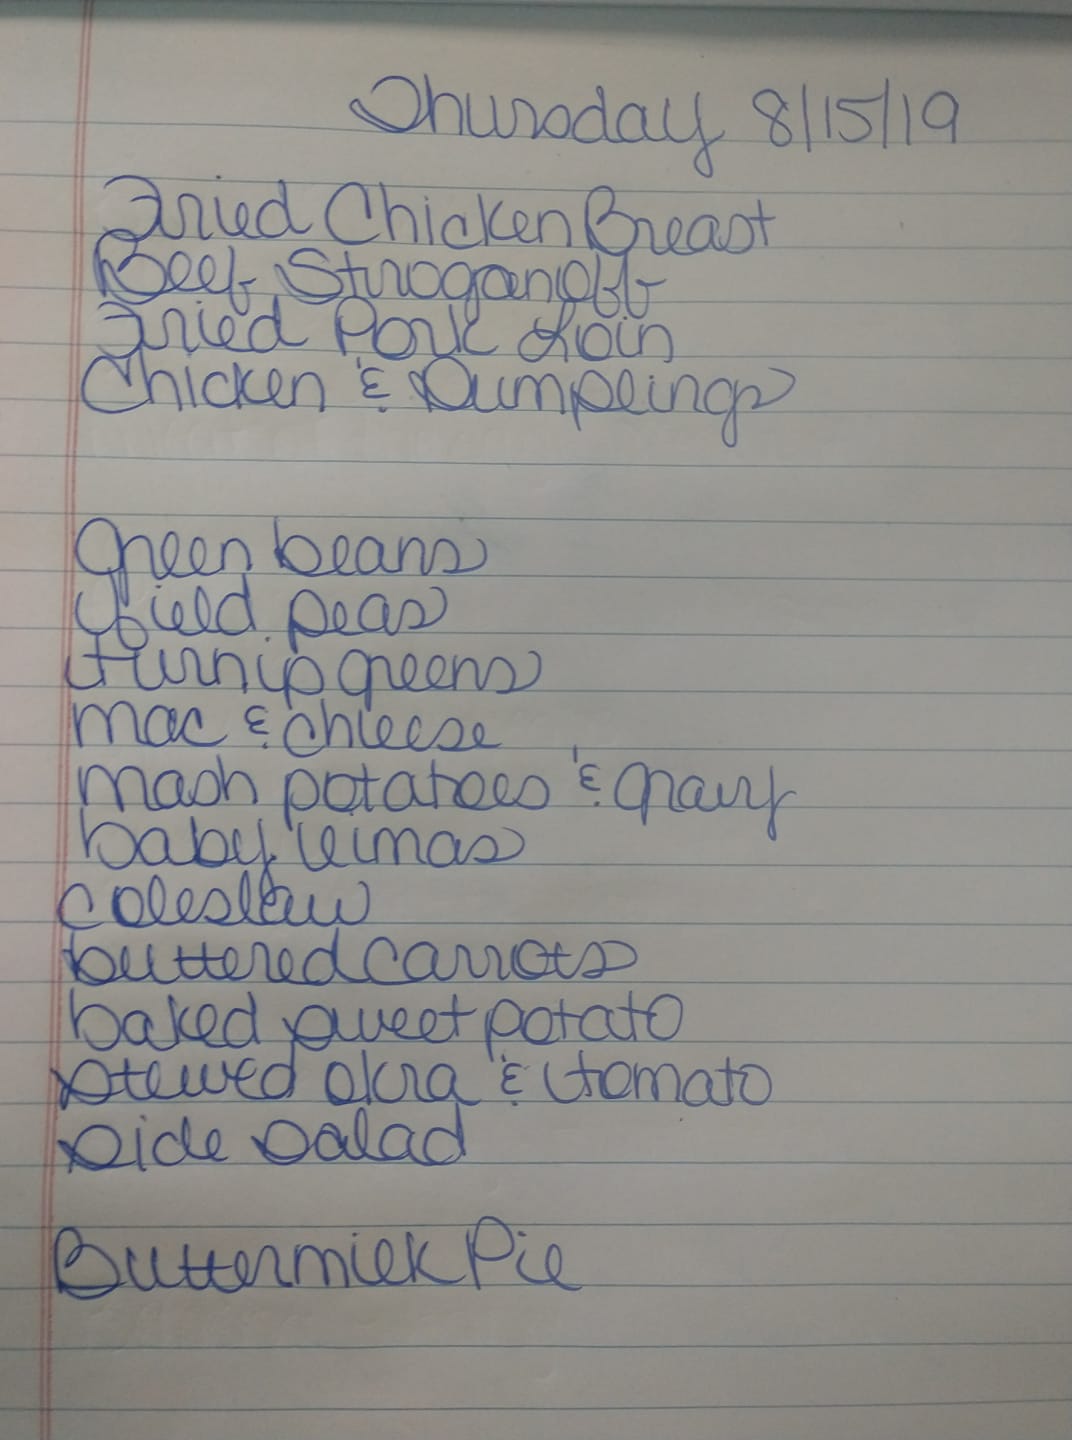 Thursday 8/15/19
Fried Chicken Breast
Beef Stroganoff
Fried Pork Loin
Chicken & Dumplings
green beans
field peas
turnip greens
mac & cheese
mash potatoes & gravy
baby limas
coleslaw
buttered carrots
baked sweet potato
stewed okra & tomato
side salad
Buttermilk Pie